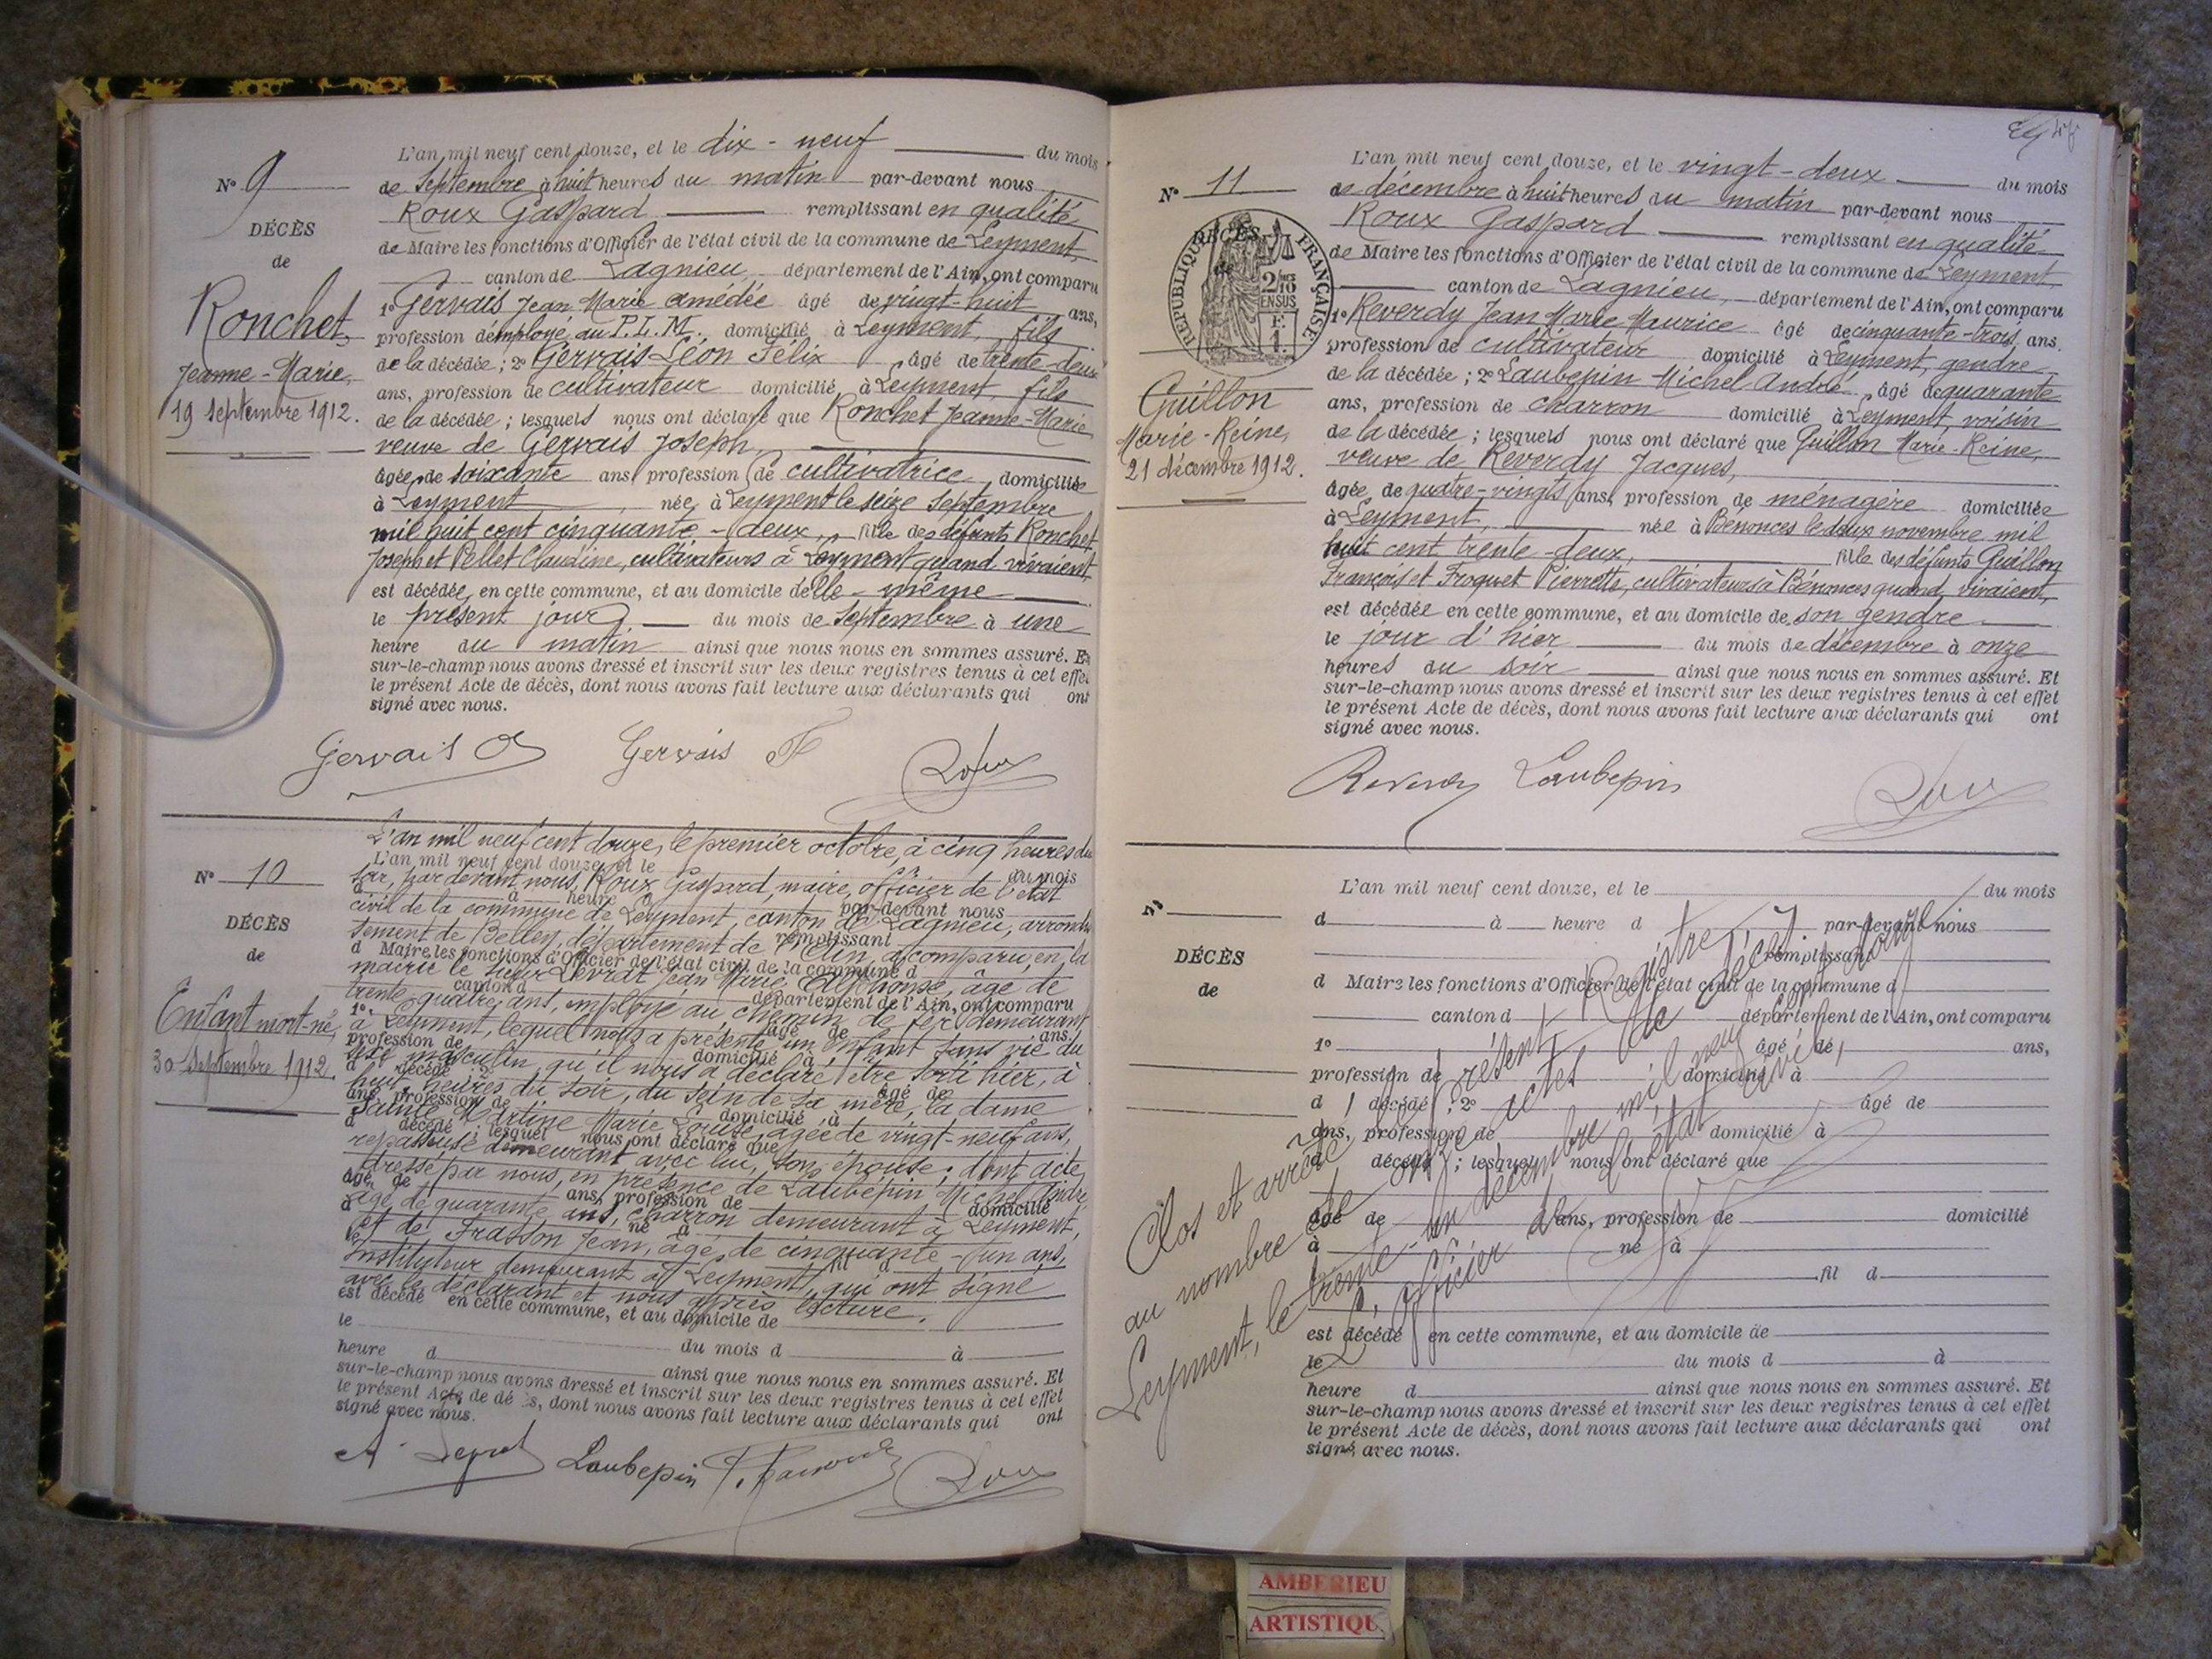 L'an mil neuf cent douze, et le dix-neuf du mois
de Septembre à huit heures du matin par-devant nous
Roux Gaspard remplissant en qualité
de Maire les fonctions d'Officier de l'état civil de la commune de Leyment,
canton de Lagnieu, département de l'Ain, ont comparu
1° Gervais Jean Marie Amédée âgé de vingt-huit ans,
profession d'employé au P.L.M. domicilié à Leyment, fils
de la décédée ; 2° Gervais Léon Félix âgé de trente-deux
ans, profession de cultivateur domicilié à Leyment, fils
de la décédée ; lesquels nous ont déclaré que Ronchet Jeanne-Marie
veuve de Gervais Joseph,
âgée de soixante ans profession de cultivatrice domiciliée
à Leyment née à Leyment le seize Septembre
mil huit cent cinquante-deux, fille des défunts Ronchet
Joseph et Pellet Claudine, cultivateurs à Leyment quand vivaient,
est décédée en cette commune, et au domicile d'elle-même
le présent jour du mois de Septembre à une
heure du matin ainsi que nous nous en sommes assuré. Et
sur-le-champ nous avons dressé et inscrit sur les deux registres tenus à cet effet
le présent Acte de décès, dont nous avons fait lecture aux déclarants qui ont
signé avec nous.
Gervais A Gervais F Roux
N° 9
DÉCÈS
de
Ronchet,
Jeanne-Marie,
19 Septembre 1912.
N° 10
DÉCÈS
de
Enfant mort-né,
30 Septembre 1912.
L'an mil neuf cent douze, le premier octobre, à cinq heures du
L'an mil neuf cent douze, et le du mois
soir, par devant nous, Roux Gaspard, maire, officier de l'état
d à heure d par-devant nous
civil de la commune de Leyment, canton de Lagnieu, arrondis
remplissant
sement de Belley, département de l'Ain, a comparu, en la
d Maire les fonctions d'Officier de l'état civil de la commune d
mairie le sieur Levrat Jean Marie Alphonse, âgé de
canton d département de l'Ain, ont comparu
trente quatre ans, employé au chemin de fer demeurant
1° âgé de ans,
à Leyment, lequel nous a présenté un enfant sans vie du
profession de domicilié à
sexe masculin, qu'il nous a déclaré être sorti hier, à
d décédé ; 2° âgé de
huit heures du soir, du sein de sa mère, la dame
ans, profession de domicilié à
Sainte Martine Marie Louise, âgée de vingt-neuf ans,
d décédé ; lesquel nous ont déclaré que
repasseuse demeurant avec lui, son épouse ; dont acte
dressé par nous, en présence de Laubépin Michel André,
âgé de ans, profession de domicilié
âgé de quarante ans, charron demeurant à Leyment,
à né à
et de Frasson Jean, âgé de cinquante-un ans,
fil d
instituteur demeurant à Leyment, qui ont signé
avec le déclarant et nous après lecture.
est décédé en cette commune, et au domicile de
le du mois d à
heure d ainsi que nous nous en sommes assuré. Et
sur-le-champ nous avons dressé et inscrit sur les deux registres tenus à cet effet
le présent Acte de décès, dont nous avons fait lecture aux déclarants qui ont
signé avec nous.
A. Levrat Laubepin Roux
N° 11
DÉCÈS
de
RÉPUBLIQUE FRANÇAISE
Guillon
Marie-Reine,
21 décembre 1912.
L'an mil neuf cent douze, et le vingt-deux du mois
de décembre à huit heures du matin par-devant nous
Roux Gaspard remplissant en qualité
de Maire les fonctions d'Officier de l'état civil de la commune de Leyment,
canton de Lagnieu, département de l'Ain, ont comparu
1° Reverdy Jean Marie Maurice âgé de cinquante-trois ans
profession de cultivateur domicilié à Leyment, gendre
de la décédée ; 2° Laubépin Michel André âgé de quarante
ans, profession de charron domicilié à Leyment, voisin
de la décédée ; lesquels nous ont déclaré que Guillon Marie-Reine,
veuve de Reverdy Jacques,
âgée de quatre-vingts ans, profession de ménagère domiciliée
à Leyment, née à Bénonces le deux novembre mil
huit cent trente-deux, fille des défunts Guillon
François et Froquet Pierrette, cultivateurs à Bénonces quand vivaient,
est décédée en cette commune, et au domicile de son gendre
le jour d'hier du mois de décembre à onze
heures du soir ainsi que nous nous en sommes assuré. Et
sur-le-champ nous avons dressé et inscrit sur les deux registres tenus à cet effet
le présent Acte de décès, dont nous avons fait lecture aux déclarants qui ont
signé avec nous.
Reverdy Laubepin Roux
N°
DÉCÈS
de
L'an mil neuf cent douze, et le du mois
d à heure d par-devant nous
remplissant
d Maire les fonctions d'Officier de l'état civil de la commune d
canton d département de l'Ain, ont comparu
1° âgé de ans,
profession de domicilié à
d décédé ; 2° âgé de
ans, profession de domicilié à
d décédé ; lesquel nous ont déclaré que
âgé de ans, profession de domicilié
à né à
fil d
est décédé en cette commune, et au domicile de
le du mois d à
heure d ainsi que nous nous en sommes assuré. Et
sur-le-champ nous avons dressé et inscrit sur les deux registres tenus à cet effet
le présent Acte de décès, dont nous avons fait lecture aux déclarants qui ont
signé avec nous.
Clos et arrêté le présent Registre
au nombre de onze actes de décès,
Leyment, le trente-un décembre mil neuf cent douze
L'officier de l'état civil,
AMBERIEU
ARTISTIQU